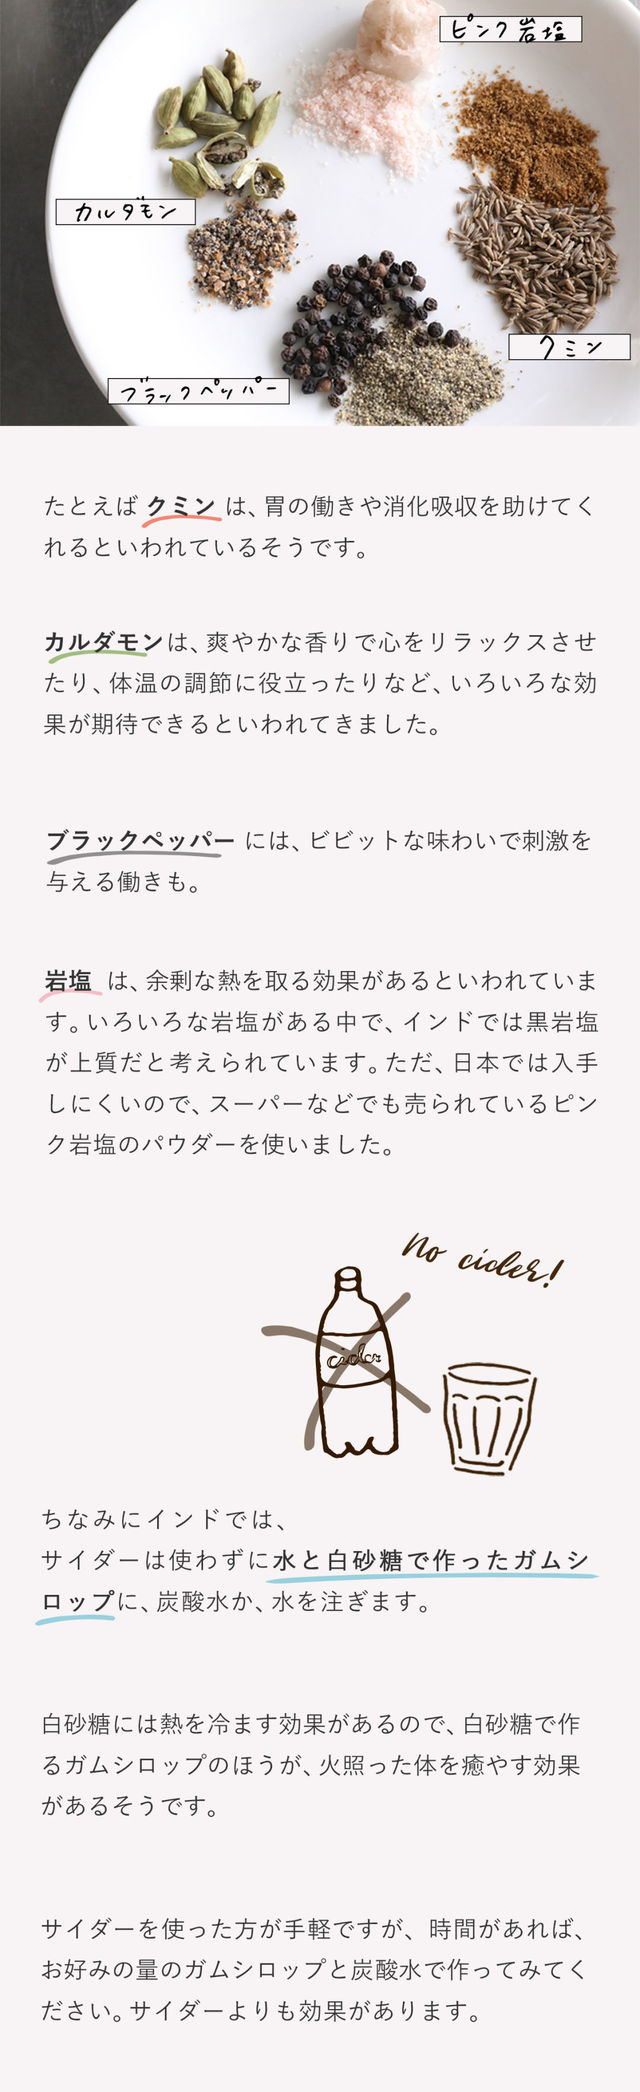 ピンク岩塩
カルダモン
クミン
ブラックペッパー
たとえば クミン は、胃の働きや消化吸収を助けてく
れるといわれているそうです。
カルダモンは、爽やかな香りで心をリラックスさせ
たり、体温の調節に役立ったりなど、いろいろな効
果が期待できるといわれてきました。
ブラックペッパー には、ビビットな味わいで刺激を
与える働きも。
岩塩 は、余剰な熱を取る効果があるといわれていま
す。いろいろな岩塩がある中で、インドでは黒岩塩
が上質だと考えられています。ただ、日本では入手
しにくいので、スーパーなどでも売られているピン
ク岩塩のパウダーを使いました。
No cider!
cider
ちなみにインドでは、
サイダーは使わずに水と白砂糖で作ったガムシ
ロップに、炭酸水か、水を注ぎます。
白砂糖には熱を冷ます効果があるので、白砂糖で作
るガムシロップのほうが、火照った体を癒やす効果
があるそうです。
サイダーを使った方が手軽ですが、時間があれば、
お好みの量のガムシロップと炭酸水で作ってみてく
ださい。サイダーよりも効果があります。